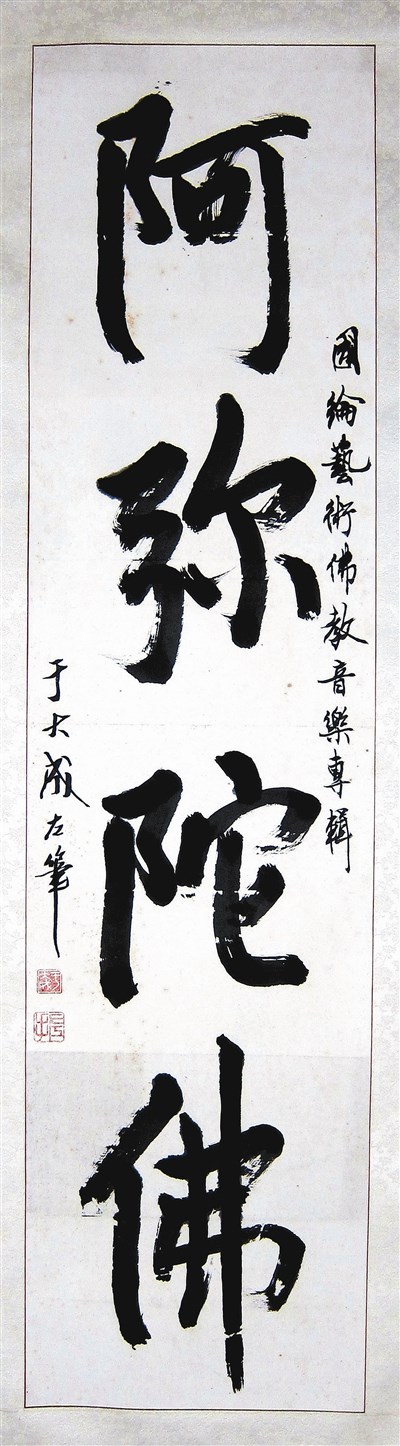 國綸藝術佛教音樂專輯
阿弥陀佛
于大成左筆